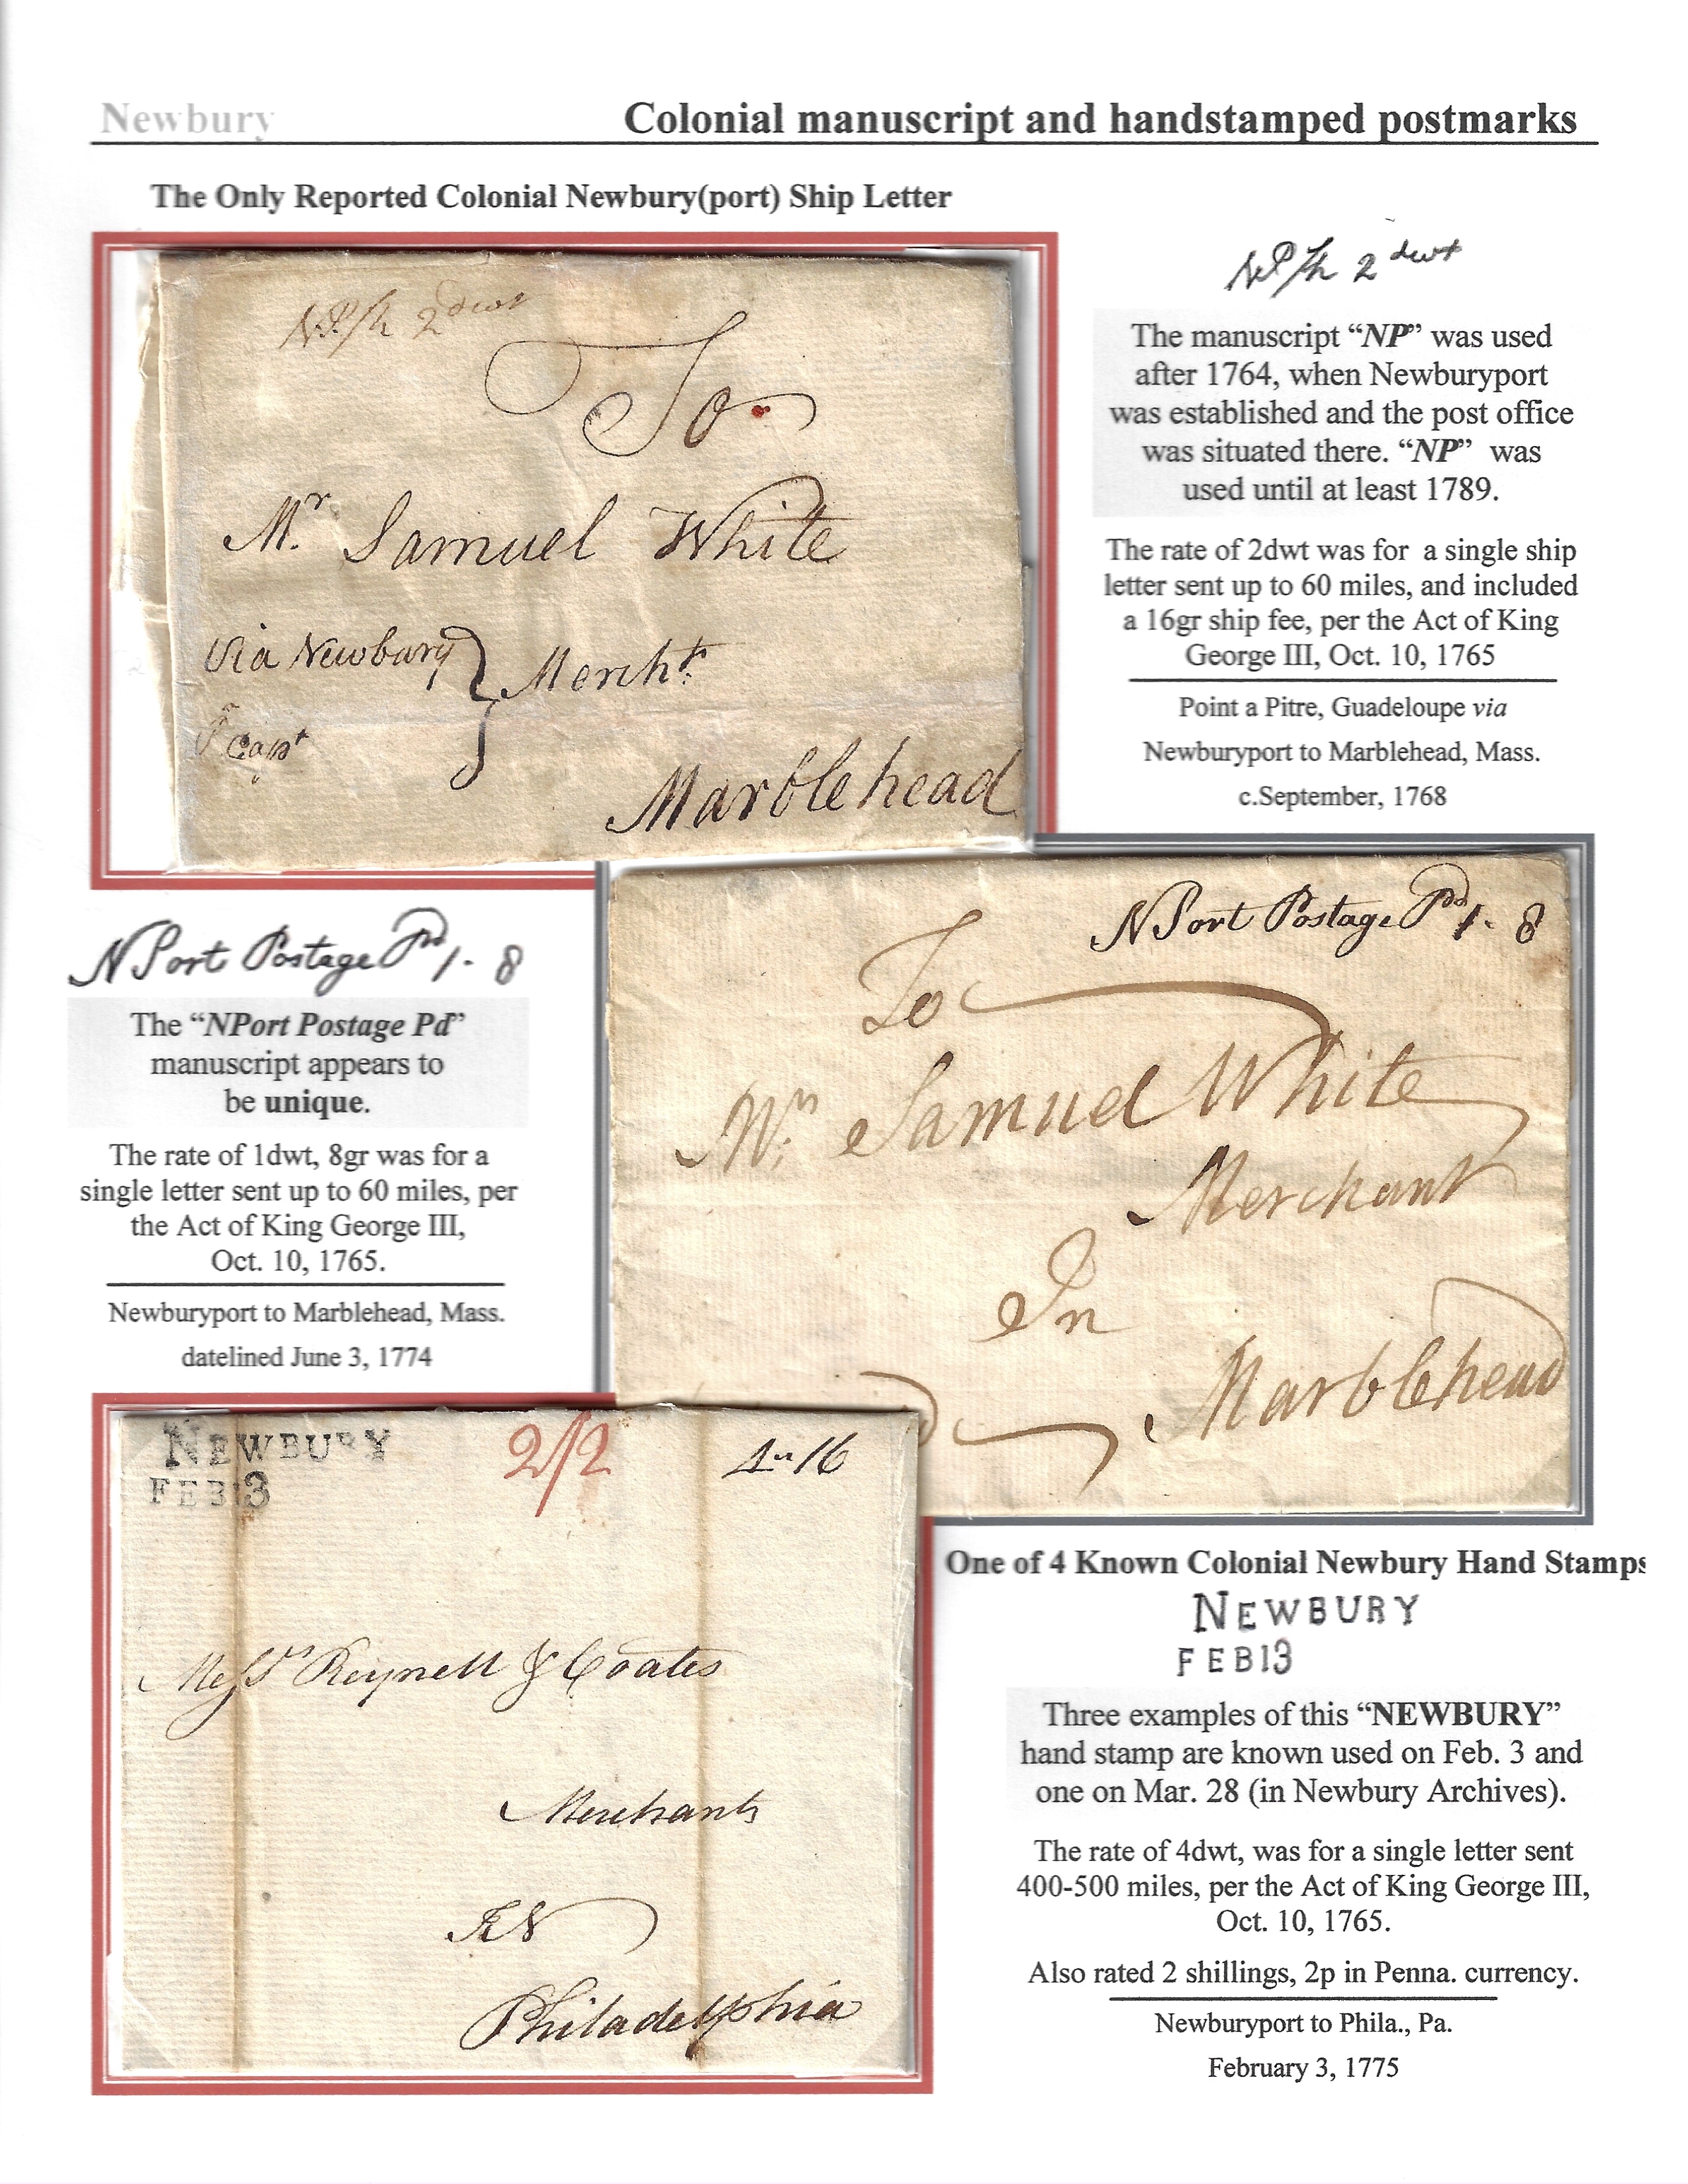 Newbury
Colonial manuscript and handstamped postmarks
The Only Reported Colonial Newbury(port) Ship Letter
NP/Sh 2dwt
To
Mr. Samuel White
Via Newbury
Mercht.
Capt
Marblehead
NP/Sh 2dwt
The manuscript “NP” was used
after 1764, when Newburyport
was established and the post office
was situated there. “NP” was
used until at least 1789.
The rate of 2dwt was for a single ship
letter sent up to 60 miles, and included
a 16gr ship fee, per the Act of King
George III, Oct. 10, 1765
Point a Pitre, Guadeloupe via
Newburyport to Marblehead, Mass.
c.September, 1768
NPort Postage Pd 1. 8
The “NPort Postage Pd”
manuscript appears to
be unique.
The rate of 1dwt, 8gr was for a
single letter sent up to 60 miles, per
the Act of King George III,
Oct. 10, 1765.
Newburyport to Marblehead, Mass.
datelined June 3, 1774
NPort Postage Pd 1. 8
To
Mr. Samuel White
Merchant
In
Marblehead
NEWBURY
FEB 3
2/2
4" 16
Messrs Reynell & Coates
Merchants
IN
Philadelphia
One of 4 Known Colonial Newbury Hand Stamps
NEWBURY
FEB13
Three examples of this “NEWBURY”
hand stamp are known used on Feb. 3 and
one on Mar. 28 (in Newbury Archives).
The rate of 4dwt, was for a single letter sent
400-500 miles, per the Act of King George III,
Oct. 10, 1765.
Also rated 2 shillings, 2p in Penna. currency.
Newburyport to Phila., Pa.
February 3, 1775